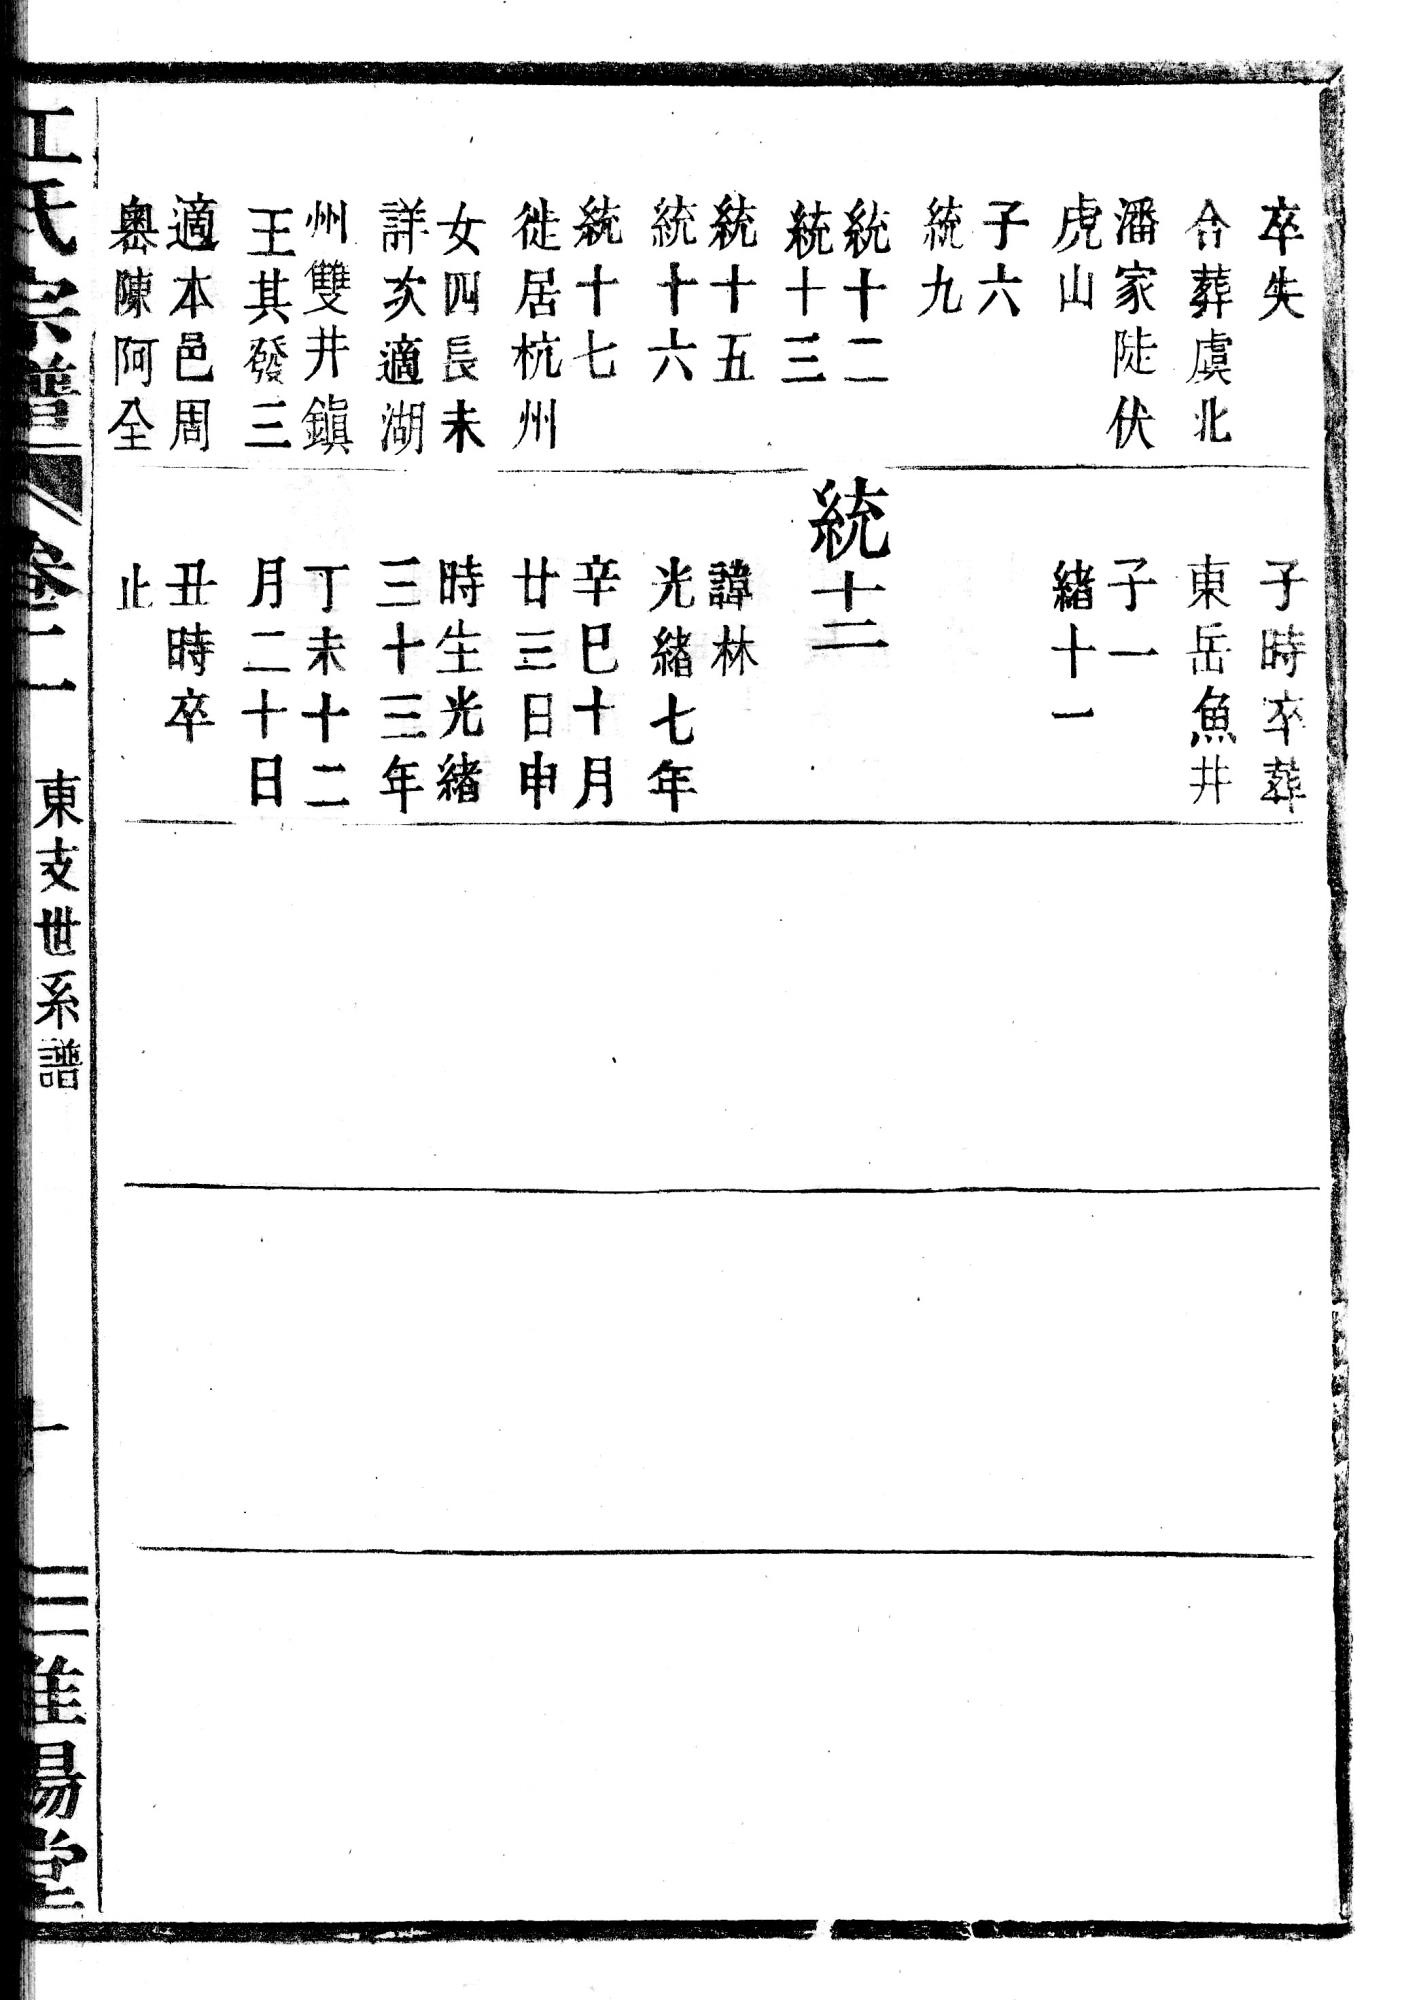 卒失
合葬虞北
潘家陡伏
虎山
子六
統九
統十二
統十三
統十五
統十六
統十七
徙居杭州
女四長未
詳次適湖
州雙井鎮
王其發三
適本邑周
奧陳阿全
子時卒葬
東岳魚井
子一
緒十一
統十二
諱林
光緒七年
辛巳十月
廿三日申
時生光緒
三十三年
丁未十二
月二十日
丑時卒
止
江氏宗譜
卷二
東支世系譜
三
陽堂